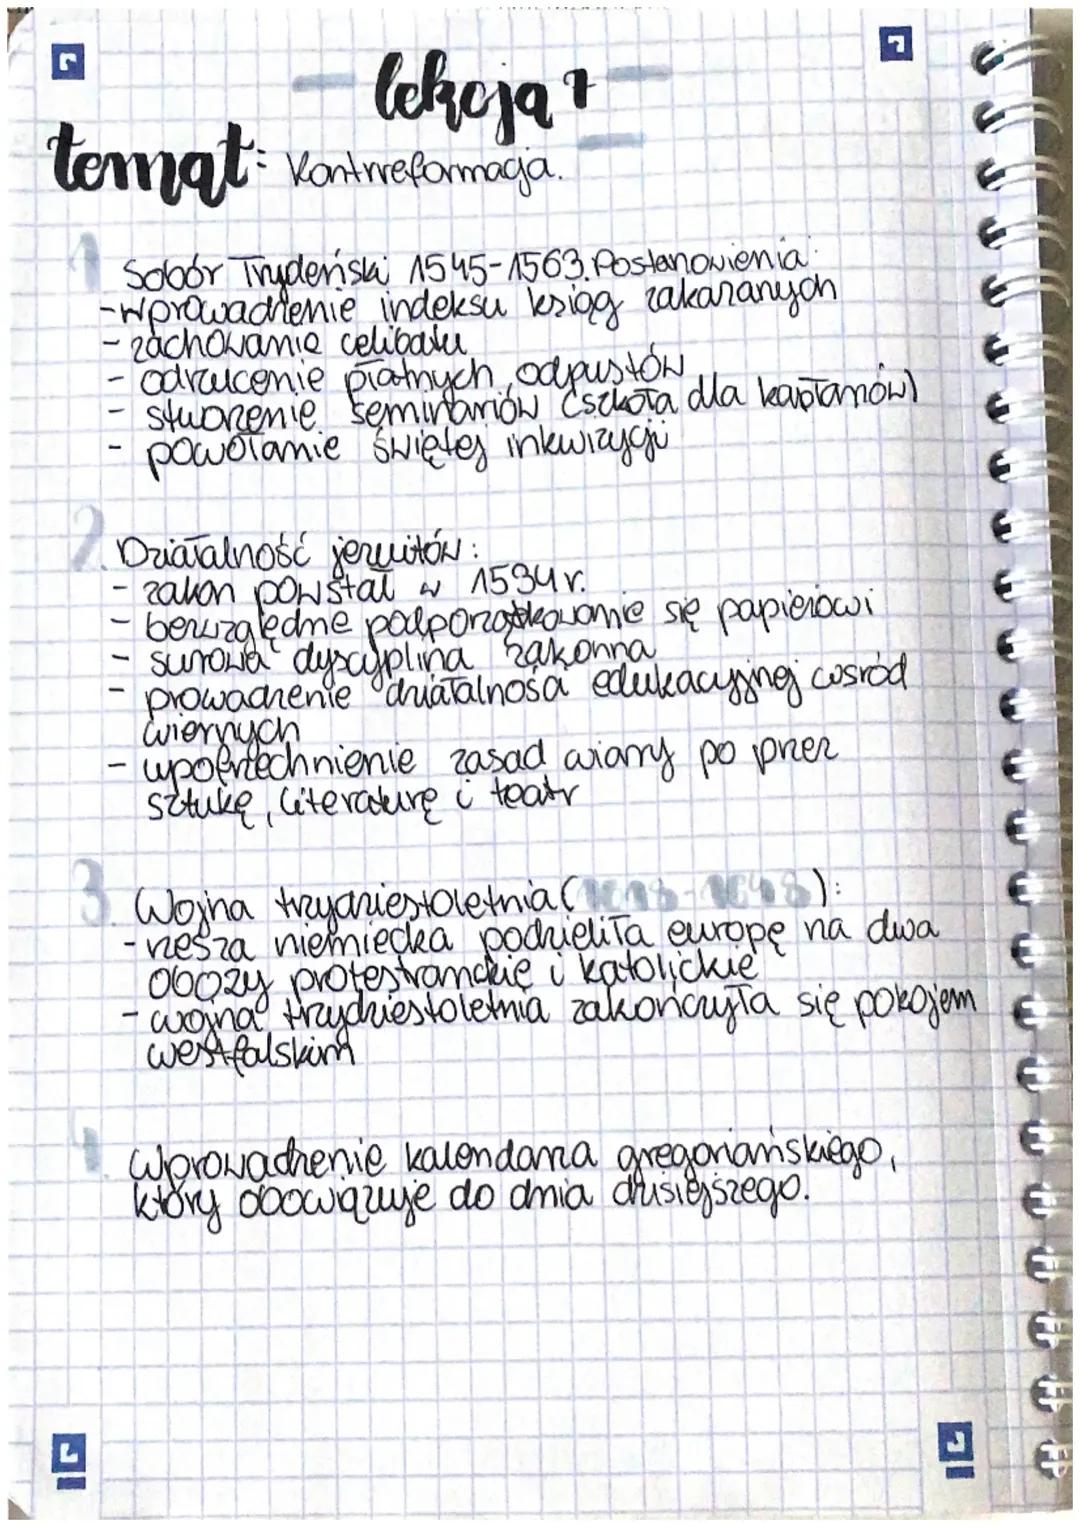 lekcja 7
temat: Kontrreformacja.
1. Sobór Trydeński 1545-1563. Postanowienia:
-wprowadzenie indeksu ksiąg zakazanych
- zachowanie celibatu
- odrzucenie płatnych odpustów
- stworzenie seminariów (szkoła dla kapłanów)
- powołanie świętej inkwizycji
2. Działalność jezuitów:
- zakon powstał w 1534 r.
- bezwzględne podporządkowanie się papierowi
- surowa dyscyplina zakonna
- prowadzenie działalności edukacyjnej wśród
wiernych
- upowrzechnienie zasad wiary po przez
sztukę, literaturę i teatr
3. Wojna trzydziestoletnia (1618-1648):
-rzesza niemiecka podzieliła europę na dwa
obozy protestranckie i katolickie
- wojna trzydziestoletnia zakończyła się pokojem
westfalskim
4. Wprowadzenie kalendarza gregoriańskiego,
który obowiązuje do dnia dzisiejszego.